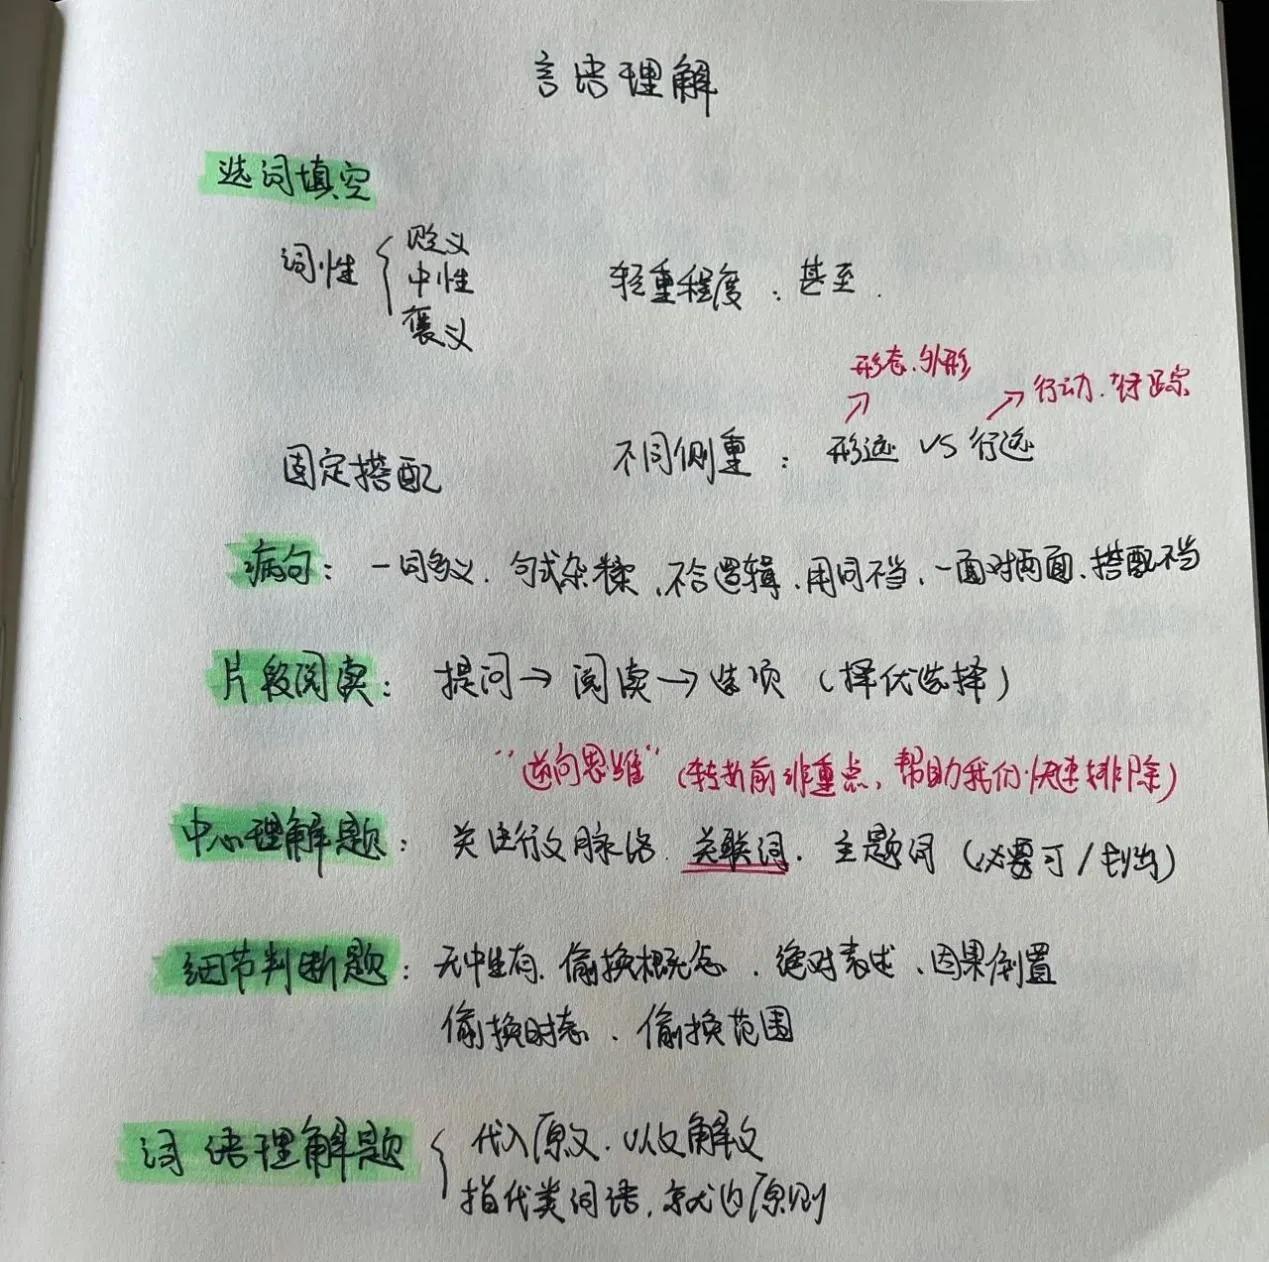 言语理解
选词填空
词性 { 贬义
中性
褒义
轻重程度：甚至.
形态、外形
行动、行踪
固定搭配
不同侧重：形迹 VS 行迹
病句：一词多义、句式杂糅、不合逻辑、用词不当、一面对两面、搭配不当
片段阅读：提问→阅读→选项（择优选择）
“逆向思维”（转折前非重点，帮助我们快速排除）
中心理解题：关注行文脉络、关联词、主题词（必要可/划出）
细节判断题：无中生有、偷换概念、绝对表述、因果倒置
偷换时态、偷换范围
词语理解题 { 代入原文、以文解文
指代类词语，就近原则